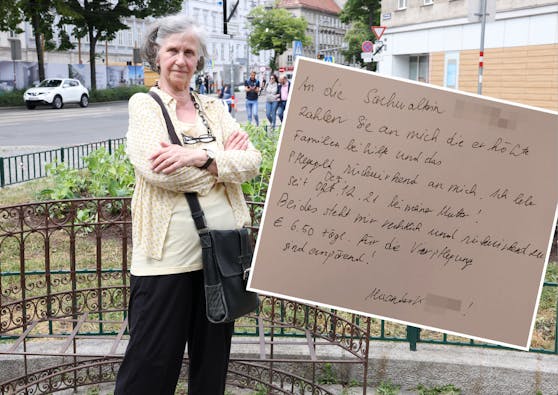 An die Sachwalterin
zahlen Sie an mich die erhöhte
Familienbeihilfe und das
Pflegegeld rückwirkend an mich. Ich lebe
seit Okt. 12. 21 bei meine Mutter!
Beides steht mir rechtlich und rückwirkend zu
€ 6.50 tägl. für die Verpflegung
sind empörend!